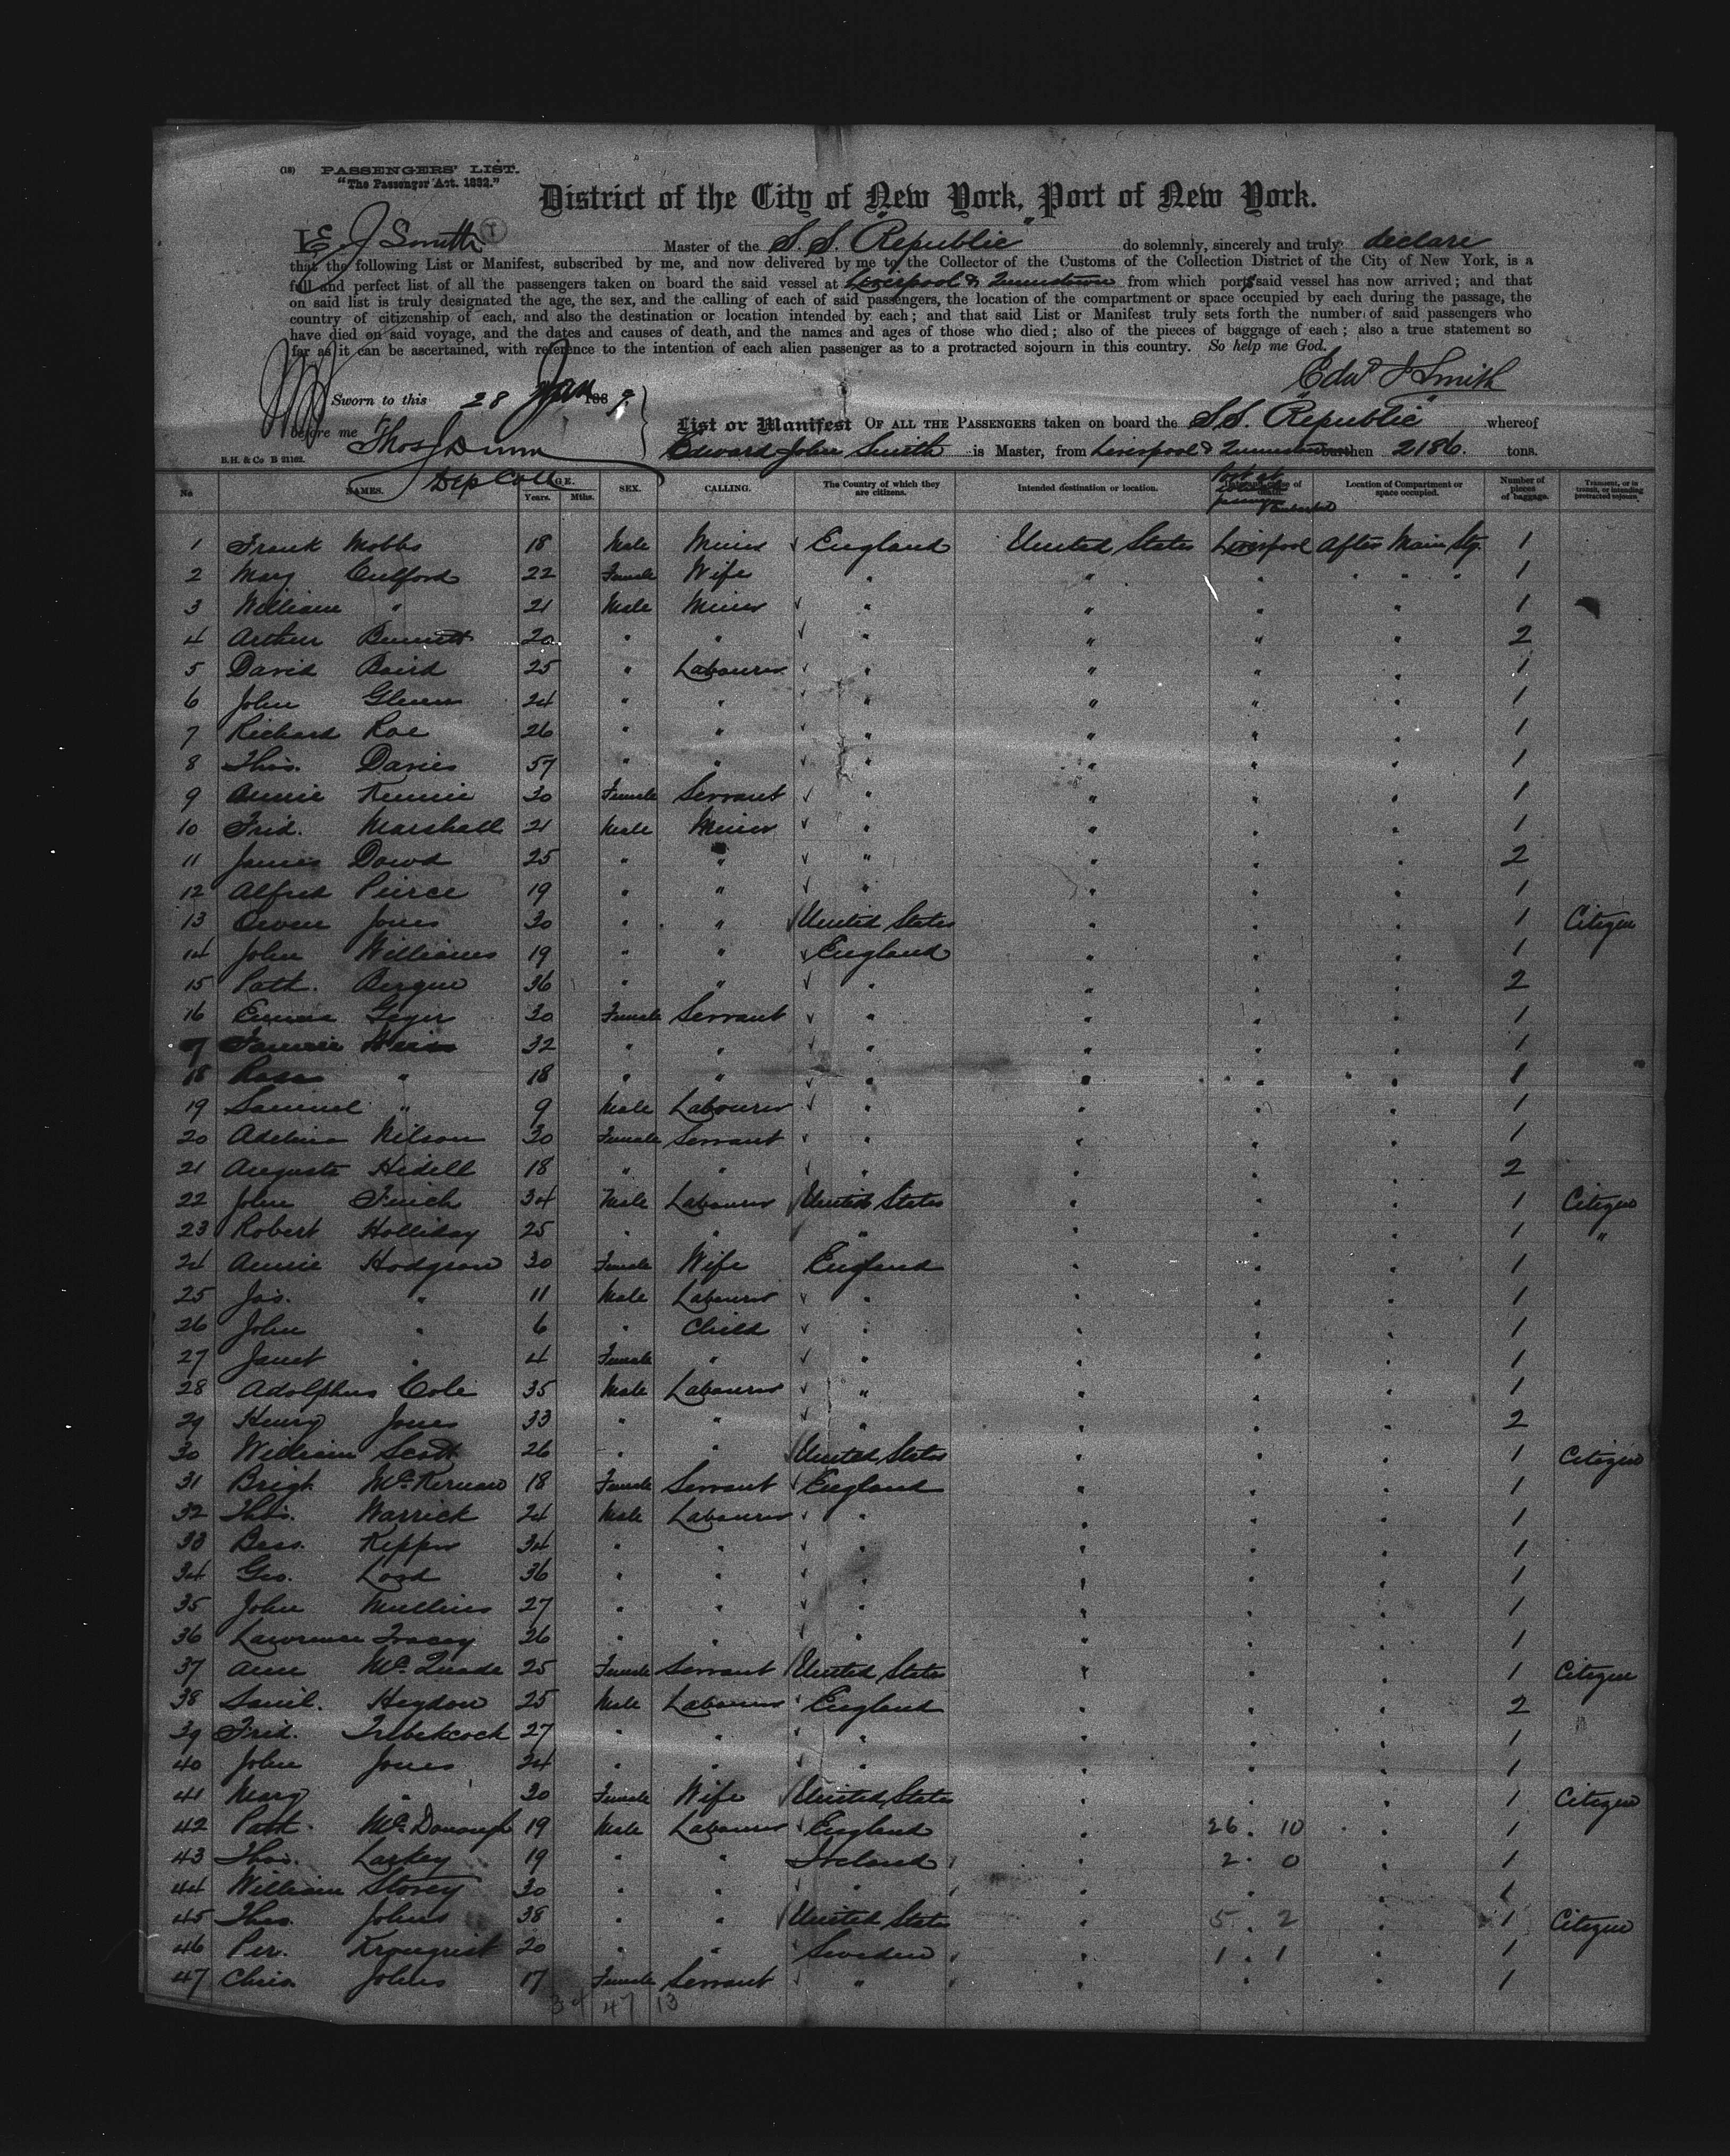 (18) PASSENGERS' LIST.
"The Passenger Act. 1882."
District of the City of New York, Port of New York.
I, E. J. Smith Master of the S. S. "Republic" do solemnly, sincerely and truly declare
that the following List or Manifest, subscribed by me, and now delivered by me to the Collector of the Customs of the Collection District of the City of New York, is a
full and perfect list of all the passengers taken on board the said vessel at Liverpool & Queenstown from which ports said vessel has now arrived; and that
on said list is truly designated the age, the sex, and the calling of each of said passengers, the location of the compartment or space occupied by each during the passage, the
country of citizenship of each, and also the destination or location intended by each; and that said List or Manifest truly sets forth the number of said passengers who
have died on said voyage, and the dates and causes of death, and the names and ages of those who died; also of the pieces of baggage of each; also a true statement so
far as it can be ascertained, with reference to the intention of each alien passenger as to a protracted sojourn in this country. So help me God.
Edwd J Smith
Sworn to this 28 Jan 1889
before me Thos J Dunn
Dep Coll
List or Manifest OF ALL THE PASSENGERS taken on board the S.S. "Republic" whereof
Edward John Smith is Master, from Liverpool & Queenstown burthen 2186. tons.
B.H. & Co B 21162.
No NAMES. AGE. Years. Mths. SEX. CALLING. The Country of which they are citizens. Intended destination or location. Location of Compartment or space occupied. Number of pieces of baggage. Transient, or in transit, or intending protracted sojourn.
1 Frank Mobbs 18 Male Miner England United States Liverpool After Main Stg. 1
2 Mary Culford 22 Female Wife " " " " " " 1
3 William " 21 Male Miner " " " " 1
4 Arthur Bennett 20 " " " " " " 2
5 David Baird 25 " Labourer " " " " 1
6 John Glenn 24 " " " " " " 1
7 Richard Roe 26 " " " " " " 1
8 Thos. Davies 57 " " " " " " 1
9 Annie Rennie 30 Female Servant " " " " 1
10 Fred. Marshall 21 Male Miner " " " " 1
11 James Dowd 25 " " " " " " 2
12 Alfred Pierce 19 " " " " " " 1
13 Owen Jones 30 " " United States " " " 1 Citizen
14 John Williams 19 " " England " " " 1
15 Patk. Bergin 36 " " " " " " 2
16 Emma Geyer 30 Female Servant " " " " 1
17 Fannie Weiss 32 " " " " " " 1
18 Rosa " 18 " " " " " " 1
19 Samuel " 9 Male Labourer " " " " 1
20 Adelina Nilson 30 Female Servant " " " " 1
21 Augusta Hidell 18 " " " " " " 2
22 John Finch 34 Male Labourer United States " " " 1 Citizen
23 Robert Holliday 25 " " " " " " 1 "
24 Annie Hodgson 30 Female Wife England " " " 1
25 Jas. " 11 Male Labourer " " " " 1
26 John " 6 " Child " " " " 1
27 Janet " 4 Female " " " " " 1
28 Adolphus Cole 35 Male Labourer " " " " 1
29 Henry Jones 33 " " " " " " 2
30 William Scott 26 " " United States " " " 1 Citizen
31 Brigt. McKernan 18 Female Servant England " " " 1
32 Thos. Warrick 24 Male Labourer " " " " 1
33 34 " " " " " " 1
34 Geo. Lord 36 " " " " " " 1
35 John Mullins 27 " " " " " " 1
36 Lawrence Tracey 26 " " " " " " 1
37 Ann McQuade 25 Female Servant United States " " " 1 Citizen
38 Saml. Heydon 25 Male Labourer England " " " 2
39 Fred. Trebelcock 27 " " " " " " 1
40 John Jones 24 " " " " " " 1
41 Mary " 30 Female Wife United States " " " 1 Citizen
42 Patk. McDonough 19 Male Labourer England " 26 . 10 " 1
43 Thos. Larkey 19 " " Ireland " 2 . 0 " 1
44 William Storey 30 " " " " " " 1
45 Thos. Johns 38 " " United States " 5 . 2 " 1 Citizen
46 Per. Kronqvist 20 " " Sweden " 1 . 1 " 1
47 Chris. Johns 17 Female Servant " " " " 1
34 47 13